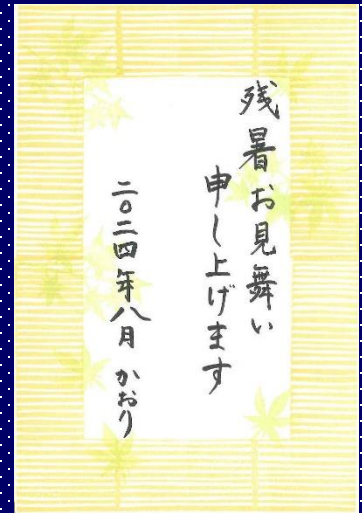 残暑お見舞い
申し上げます
二〇二四年八月 かおり